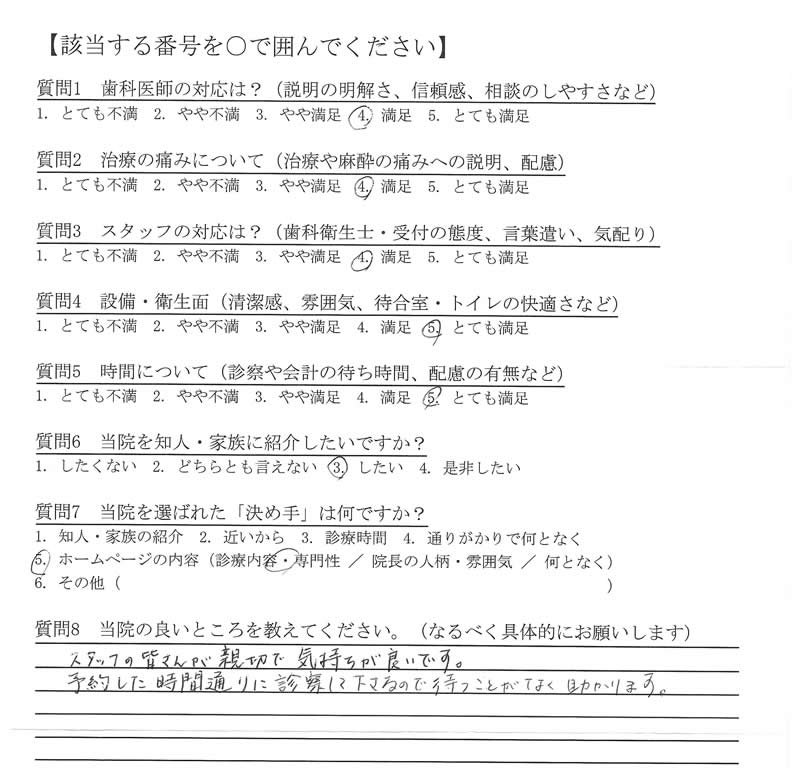 【該当する番号を○で囲んでください】
質問1　歯科医師の対応は？（説明の明解さ、信頼感、相談のしやすさなど）
1. とても不満　2. やや不満　3. やや満足　4. 満足　5. とても満足
質問2　治療の痛みについて（治療や麻酔の痛みへの説明、配慮）
1. とても不満　2. やや不満　3. やや満足　4. 満足　5. とても満足
質問3　スタッフの対応は？（歯科衛生士・受付の態度、言葉遣い、気配り）
1. とても不満　2. やや不満　3. やや満足　4. 満足　5. とても満足
質問4　設備・衛生面（清潔感、雰囲気、待合室・トイレの快適さなど）
1. とても不満　2. やや不満　3. やや満足　4. 満足　5. とても満足
質問5　時間について（診察や会計の待ち時間、配慮の有無など）
1. とても不満　2. やや不満　3. やや満足　4. 満足　5. とても満足
質問6　当院を知人・家族に紹介したいですか？
1. したくない　2. どちらとも言えない　3. したい　4. 是非したい
質問7　当院を選ばれた「決め手」は何ですか？
1. 知人・家族の紹介　2. 近いから　3. 診療時間　4. 通りがかりで何となく
5. ホームページの内容（診療内容・専門性 ／ 院長の人柄・雰囲気 ／ 何となく）
6. その他（　　　　　　　　　　　　　　　　　　　　）
質問8　当院の良いところを教えてください。（なるべく具体的にお願いします）
スタッフの皆さんが親切で気持ちが良いです。
予約した時間通りに診察して下さるので待つことがなく助かります。